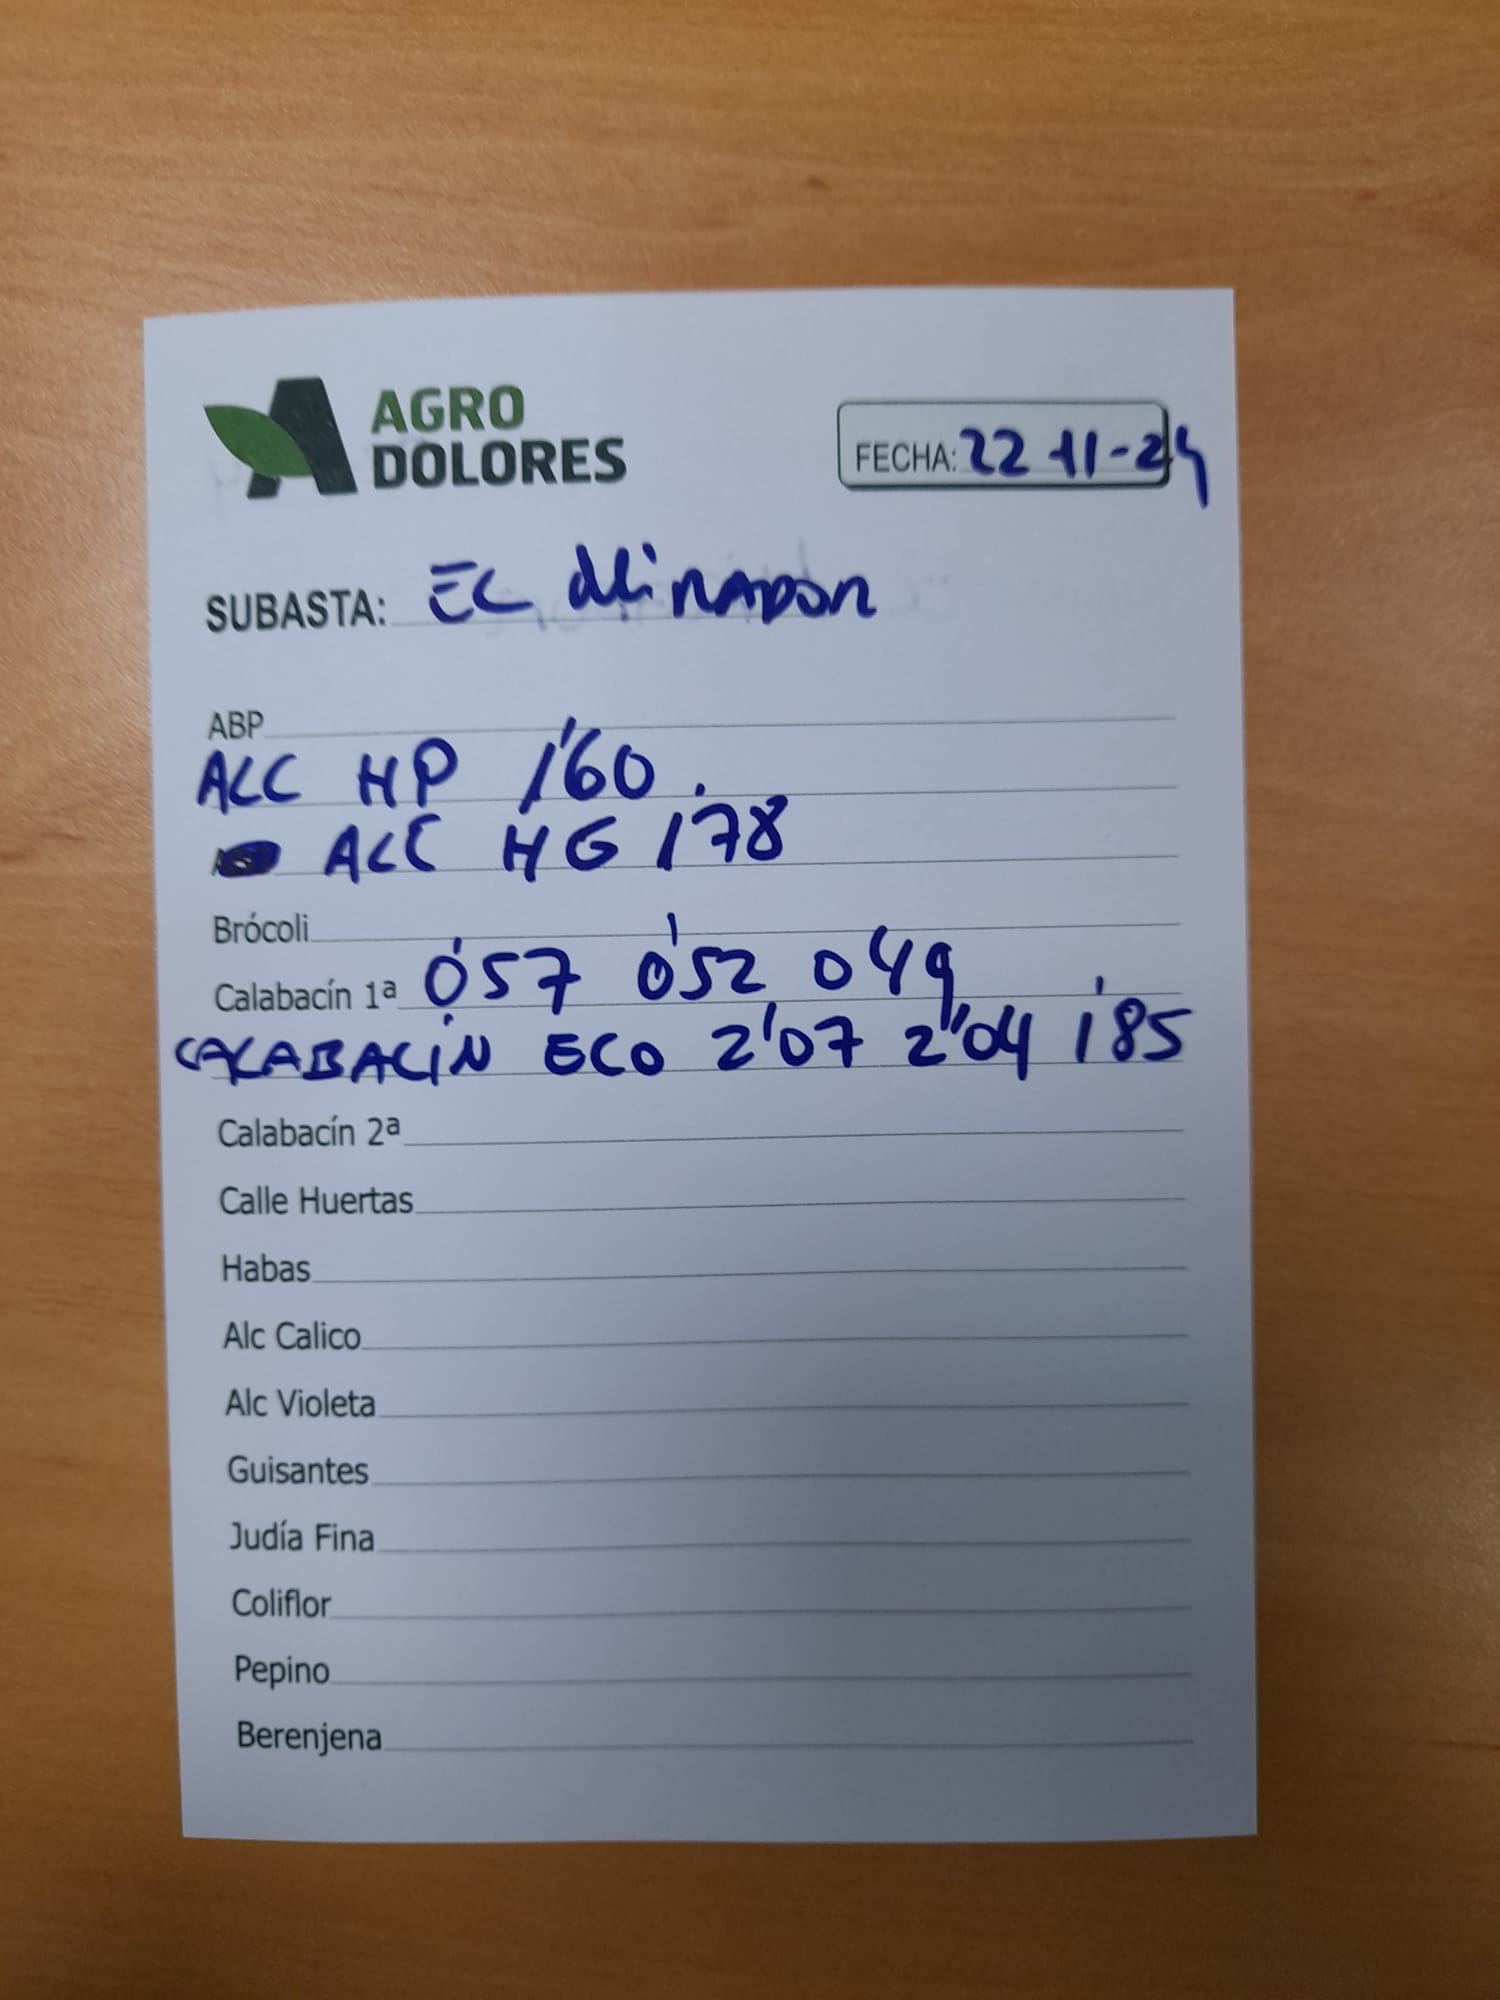 AGRO
DOLORES
FECHA: 22-11-24
SUBASTA: EL MIRADOR
ABP
ALC HP 1'60.
ALC HG 1'78
Brócoli
Calabacín 1ª 0'57 0'52 049
CALABACÍN ECO 2'07 2'04 1'85
Calabacín 2ª
Calle Huertas
Habas
Alc Calico
Alc Violeta
Guisantes
Judía Fina
Coliflor
Pepino
Berenjena